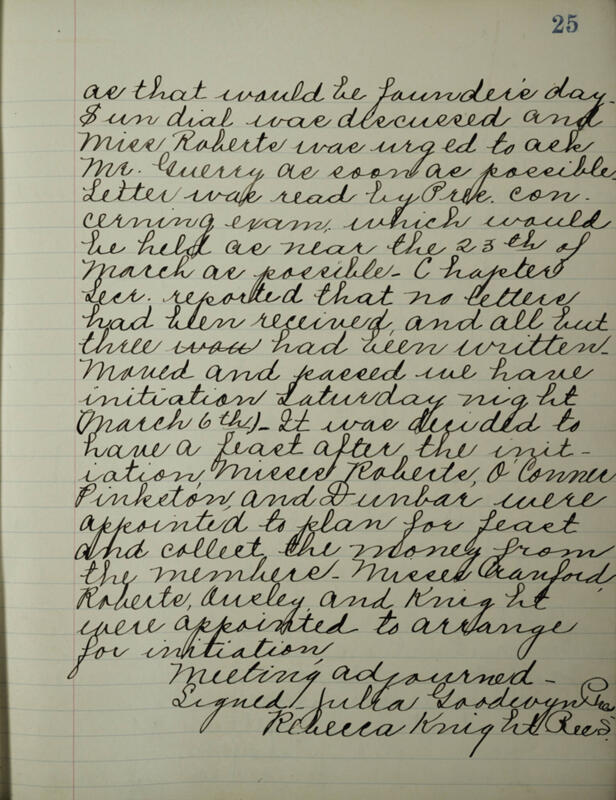 25
as that would be founder's day.
Sun dial was discussed and
Miss Roberts was urged to ask
Mr. Guerry as soon as possible.
Letter was read by Pres. con-
cerning exam. which would
be held as near the 23th of
March as possible - Chapter
Secr. reported that no letters
had been received, and all but
three had been written -
Moved and passed we have
initiation Saturday night
(March 6th) - It was decided to
have a feast after the init-
iation, Misses Roberts, O'Conner
Pinkston, and Dunbar were
appointed to plan for feast
and collect the money from
the members - Misses Cranford,
Roberts, Ousley, and Knight
were appointed to arrange
for initiation,
Meeting adjourned -
Signed - Julia Goodwyn Pres
Rebecca Knight Rec. S.